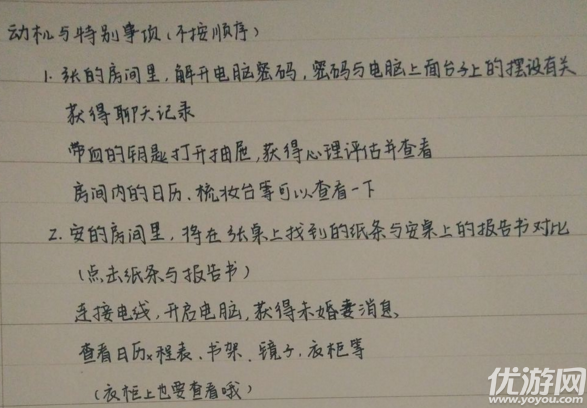 动机与特别事项(不按顺序)
1. 张的房间里,解开电脑密码,密码与电脑上面台子上的摆设有关
获得聊天记录
带血的钥匙打开抽屉,获得心理评估并查看
房间内的日历、梳妆台等可以查看一下
2. 安的房间里,将在张桌上找到的纸条与安桌上的报告书对比
(点击纸条与报告书)
连接电线,开启电脑,获得未婚妻消息、
查看日历、程表、书架、镜子、衣柜等
(衣柜上也要查看哦)
优游网
www.yoyou.com